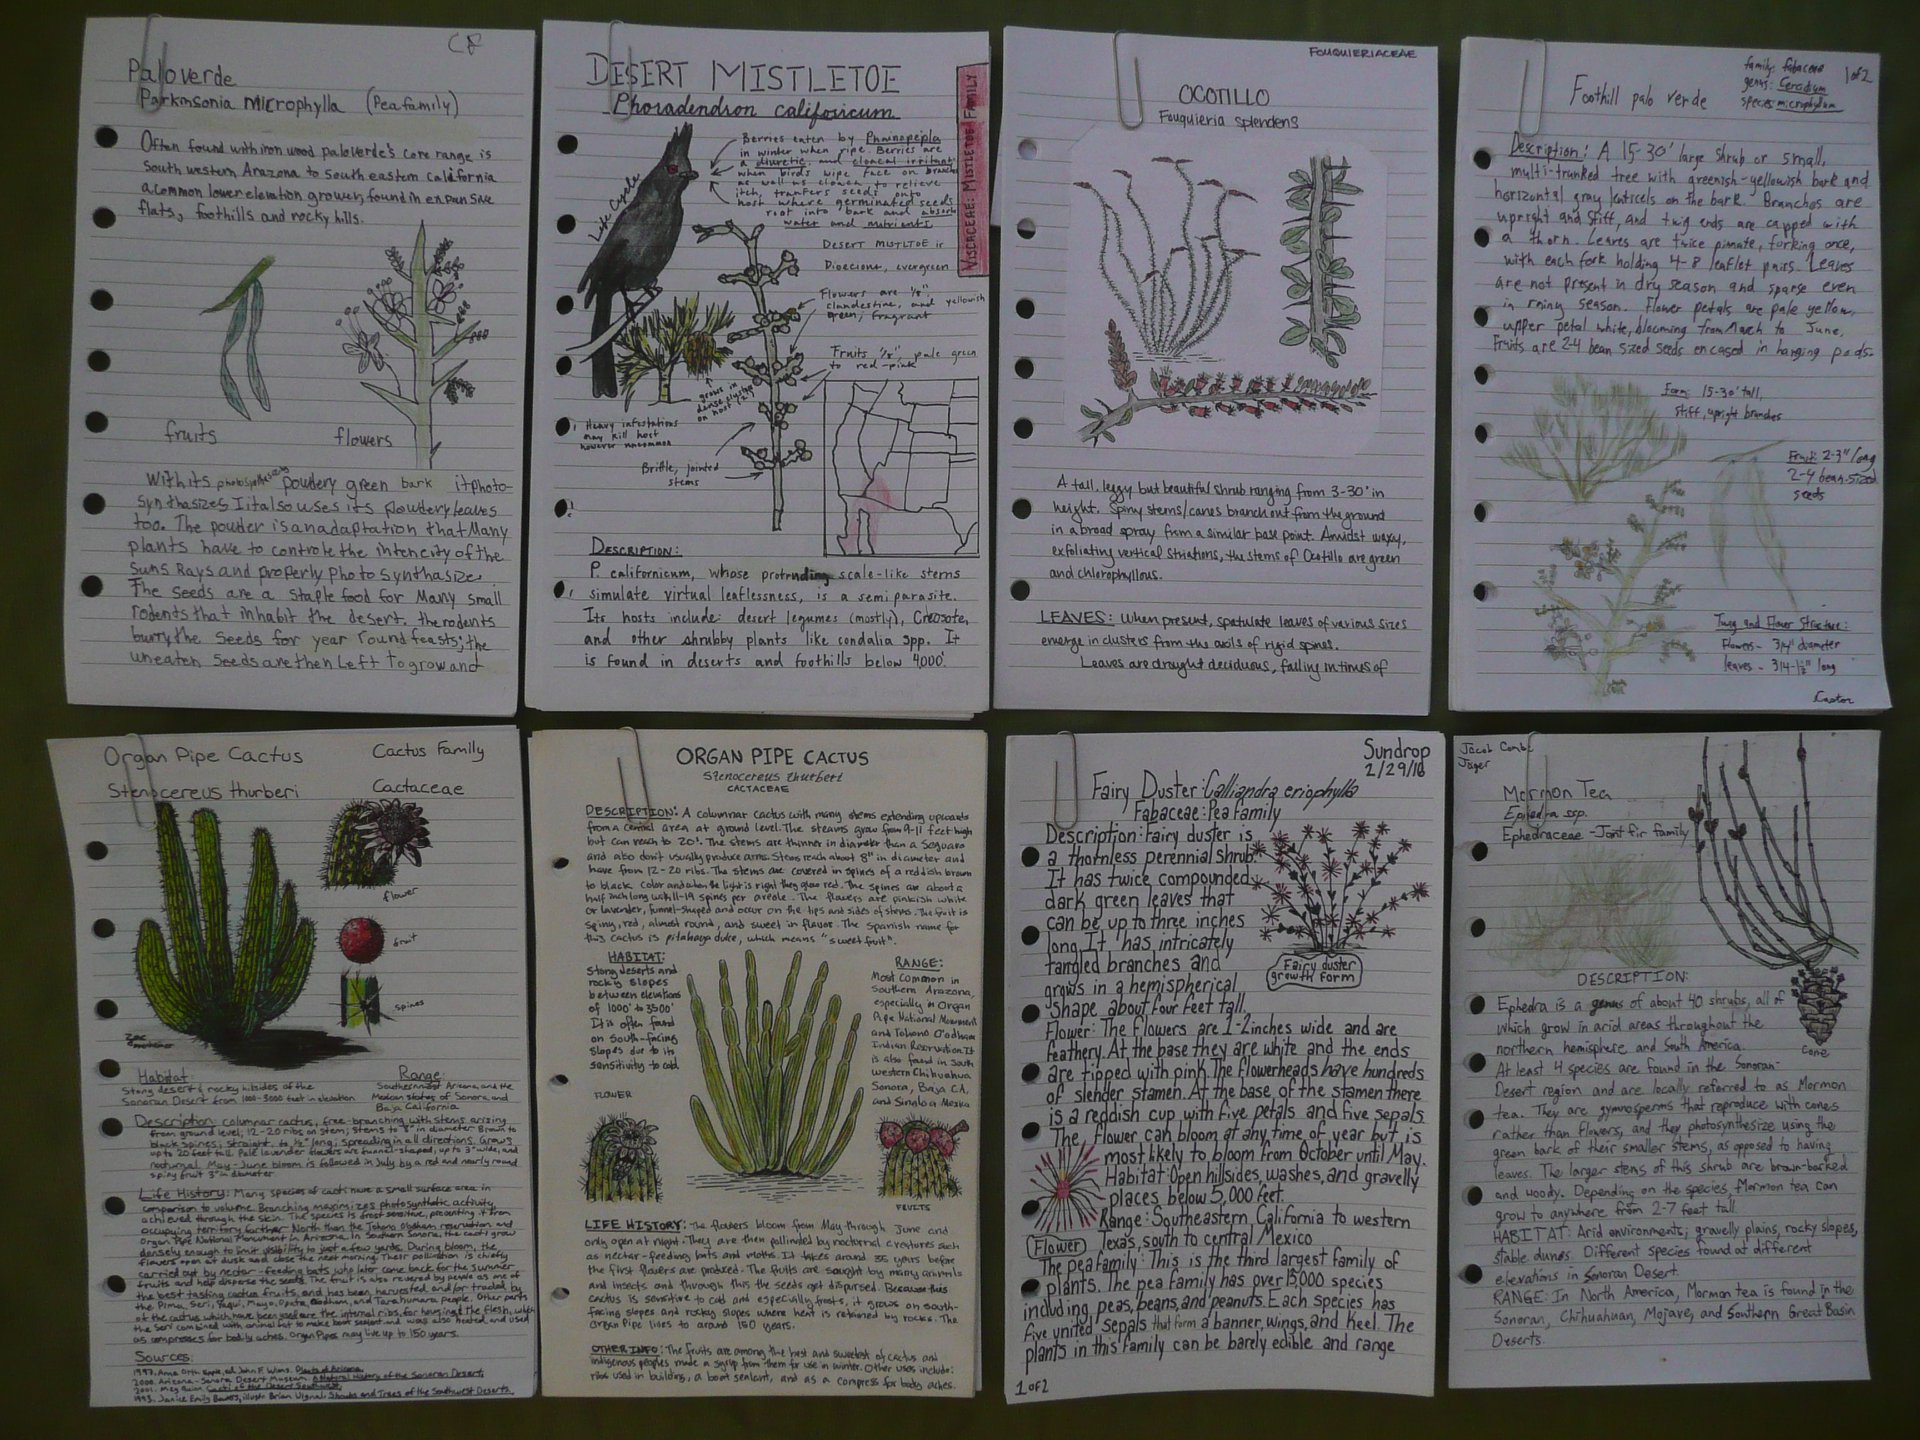 Paloverde
Parkmsonia microphylla (Pea family)
Often found with iron wood paloverde's core range is
South western Arazona to south eastern california
a common lower elevation grower, found in expansive
flats, foothills and rocky hills.
fruits
flowers
With its photosynthesizing powdery green bark it photo-
synthasizes It also uses its powdery leaves
too. The powder is an adaptation that Many
plants have to controle the intencity of the
Suns Rays and properly photosynthasize.
The seeds are a staple food for Many small
rodents that inhabit the desert. the rodents
burry the seeds for year round feasts; the
uneaten seeds are then Left To grow and
DESERT MISTLETOE
Phoradendron califoricum
VISCACEAE: MISTLETOE FAMILY
Life Cycle
Berries eaten by Phainopepla
in winter when ripe. Berries are
a diuretic, and cloacal irritant
when birds wipe face on branches
as well as cloaca to relieve
itch, tranfers seeds onto
host where germinated seeds
root into bark and absorb
water and nutrients
Desert MISTLTOE is
Dioecious, evergreen
Flowers are 1/8"
clandestine, and yellowish
green, fragrant
Fruits, 1/8", pale green
to red-pink
grows in
dense cluster
on host
Heavy infestations
may kill host
however uncommon
Brittle, jointed
stems
DESCRIPTION:
P. californicum, whose protruding scale-like stems
simulate virtual leaflessness, is a semi parasite.
Its hosts include: desert legumes (mostly), Creosote,
and other shrubby plants like condalia spp. It
is found in deserts and foothills below 4,000'.
FOUQUIERIACEAE
OCOTILLO
Fouquieria splendens
A tall, leggy but beautiful shrub ranging from 3-30' in
height. Spiny stems/canes branch out from the ground
in a broad spray from a similar base point. Amidst waxy,
exfoliating vertical striations, the stems of Ocotillo are green
and chlorophyllous.
LEAVES: When present, spatulate leaves of various sizes
emerge in clusters from the axils of rigid spines.
Leaves are drought deciduous, falling in times of
family: fabaceae
genus: Cercidium
species: microphyllum
1 of 2
Foothill palo verde
Description: A 15-30' large shrub or small,
multi-trunked tree with greenish-yellowish bark and
horizontal gray lenticels on the bark. Branches are
upright and stiff, and twig ends are capped with
a thorn. Leaves are twice pinnate, forking once,
with each fork holding 4-8 leaflet pairs. Leaves
are not present in dry season and sparse even
in rainy season. Flower petals are pale yellow,
upper petal white, blooming from March to June.
Fruits are 2-4 bean sized seeds encased in hanging pods.
Form: 15-30' tall,
stiff, upright branches
Fruit: 2-3" long
2-4 bean-sized
seeds
Twig and Flower Structure:
Flowers - 3/4" diameter
leaves - 3/4-1½" long
Castor
Organ Pipe Cactus
Cactus Family
Stenocereus thurberi
Cactaceae
flower
fruit
spines
Habitat:
Stony desert & rocky hillsides of the
Sonoran Desert from 1000-3000 feet in elevation
Range:
Southernmost Arizona, and the
Mexican states of Sonora, and
Baja California
Description: columnar cactus, free-branching with stems arising
from ground level; 12-20 ribs on stem; stems to 8" in diameter Brown to
black spines; straight, to ½" long; spreading in all directions. Grows
up to 20 feet tall. Pale lavender flowers are funnel-shaped, up to 3" wide, and
nocturnal. May-June bloom is followed in July by a red and nearly round
spiny fruit 3" in diameter
Life History: Many species of cacti have a small surface area in
comparison to volume. Branching maximizes photosynthetic activity,
achieved through the skin. The species is frost sensitive, preventing it from
occupying territory further North than the Tohono O'odham reservation and
Organ Pipe National Monument in Arizona. In Southern Sonora, the cacti grow
densely enough to limit visibility to just a few yards. During bloom, the
flowers open at dusk and close the next morning. Their pollination is chiefly
carried out by nectar-feeding bats who later come back for the summer
fruits and help disperse the seeds. The fruit is also revered by people as one of
the best tasting cactus fruits, and has been harvested and/or traded by
the Pima, Seri, Yaqui, Mayo, Opata, Oodham, and Tarahumara people. Other parts
of the cactus which have been used are the internal ribs, for housing; the flesh, which
the Seri combined with animal fat to make boat sealant and was also heated and used
as compresses for body aches. Organ Pipes may live up to 150 years.
Sources:
1997. Anne Orth Epple, ed. John F. Wiens. Plants of Arizona.
2000. Arizona-Sonora Desert Museum. A Natural History of the Sonoran Desert.
2001. Meg Quinn Cacti of the Desert Southwest.
1993. Janice Emily Bowers, illustr. Brian Wignal. Shrubs and Trees of the Southwest Deserts.
ORGAN PIPE CACTUS
Stenocereus thurberi
CACTACEAE
DESCRIPTION: A columnar cactus with many stems extending upwards
from a central area at ground level. The steams grow from 9-11 feet high
but can reach to 20'. The stems are thinner in diameter than a Saguaro
and also don't usually produce arms. Stems reach about 8" in diameter and
have from 12-20 ribs. The stems are covered in spines of a reddish brown
to black color and when the light is right they glow red. The spines are about a
half inch long with 11-19 spines per areole. The flowers are pinkish white
or lavender, funnel-shaped and occur on the tips and sides of stems. The fruit is
spiny, red, almost round, and sweet in flavor. The Spanish name for
this cactus is pitahaya dulce, which means "sweet fruit".
HABITAT:
Stony deserts and
rocky slopes
between elevations
of 1000' to 3500'
It is often found
on South-facing
slopes due to its
sensitivity to cold
RANGE:
Most common in
Southern Arazona,
especially in Organ
Pipe National Monument
and Tohono O'odham
Indian Reservation. It
is also found in South
western Chihuahua
Sonora, Baja CA,
and Sinaloa Mexico
FLOWER
FRUITS
LIFE HISTORY: The flowers bloom from May through June and
only open at night. They are then pollinated by nocturnal creatures such
as nectar-feeding bats and moths. It takes around 35 years before
the first flowers are produced. The fruits are sought by many animals
and insects and through this the seeds get dispursed. Because this
cactus is sensitive to cold and especially frosts, it grows on south-
facing slopes and rocky slopes where heat is retained by rocks. The
Organ Pipe lives to around 150 years.
OTHER INFO: The fruits are among the best and sweetest of cactus and
indigenous peoples made a syrup from them for use in winter. Other uses include:
ribs used in building, a boat sealent, and as a compress for body aches.
Sundrop
2/29/16
Fairy Duster: Calliandra eriophylla
Fabaceae: Pea Family
Description: Fairy duster is
a thornless perennial shrub.
It has twice compounded
dark green leaves that
can be up to three inches
long. It has intricately
tangled branches and
grows in a hemispherical
shape about four feet tall.
Fairy duster
growth form
Flower: The flowers are 1-2 inches wide and are
feathery. At the base they are white and the ends
are tipped with pink. The flowerheads have hundreds
of slender stamen. At the base of the stamen there
is a reddish cup with five petals and five sepals
The flower can bloom at any time of year but is
most likely to bloom from October until May.
Habitat: Open hillsides, washes, and gravelly
places below 5,000 feet.
Range: Southeastern California to western
Texas, south to central Mexico
Flower
The pea family: This is the third largest family of
plants. The pea family has over 15,000 species
including peas, beans, and peanuts. Each species has
five united sepals that form a banner, wings, and keel. The
plants in this family can be barely edible and range
1 of 2
Jacob Combs
Mormon Tea
Ephedra ssp.
Ephedraceae - Joint fir family
cone
DESCRIPTION:
Ephedra is a genus of about 40 shrubs, all of
which grow in arid areas throughout the
northern hemisphere and South America.
At least 4 species are found in the Sonoran
Desert region and are locally referred to as Mormon
tea. They are gymnosperms that reproduce with cones
rather than flowers, and they photosynthesize using the
green bark of their smaller stems, as opposed to having
leaves. The larger stems of this shrub are brown-barked
and woody. Depending on the species, Mormon tea can
grow to anywhere from 2-7 feet tall.
HABITAT: Arid environments; gravelly plains, rocky slopes,
stable dunes. Different species found at different
elevations in Sonoran Desert.
RANGE: In North America, Mormon tea is found in the
Sonoran, Chihuahuan, Mojave, and Southern Great Basin
Deserts.